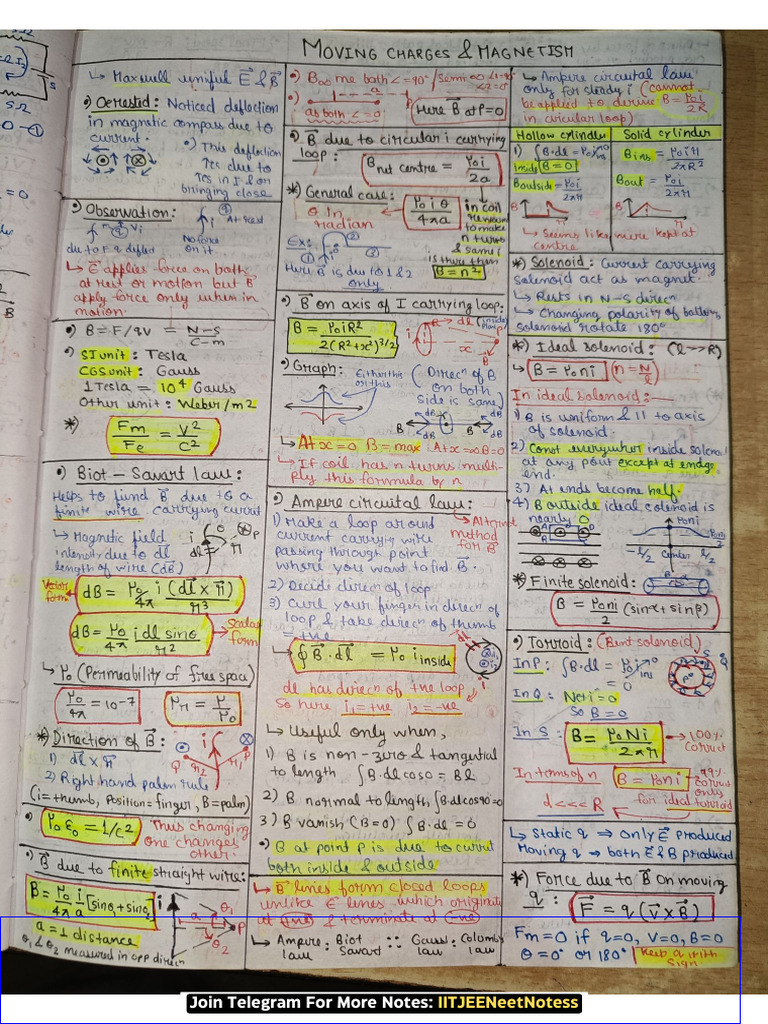 MOVING CHARGES & MAGNETISM
↳ Maxwell unified E⃗ & B⃗
•) Oersted: Noticed deflection
in magnetic compass due to
current.
•) This deflection
↑es due to
↑es in I & or
bringing close
•) Observation:
At rest
due to F q deflect
No force
on it
↳ E⃗ applies force on both
at rest or motion but B⃗
apply force only when in
motion.
•) B = F/qV = N-S/C-m
•) SI unit: Tesla
CGS unit: Gauss
1 Tesla = 10⁴ Gauss
Other unit: Weber/m2
*) Fm/Fe = V²/C²
•) Biot – Savart law:
Helps to find B⃗ due to a
finite wire carrying curret
↳ Magnetic field
intensity due to dl
length of wire (dB)
Vector
form
dB = μ₀/4π i (dl⃗ x r⃗)/r³
dB = μ₀/4π i dl sinθ/r²
Scalar
form
↳ μ₀ (Permeability of free space)
μ₀/4π = 10⁻⁷
μr = μ/μ₀
*) Direction of B⃗:
1) dl⃗ x r⃗
2) Right hand palm rule
(i = thumb, Position = finger, B = palm)
•) μ₀ε₀ = 1/c²
Thus changing
one changes
other.
•) B⃗ due to finite straight wire:
B = μ₀/4π i/a [sinθ₁ + sinθ₂]
a = ⊥ distance
θ₁ & θ₂ measured in opp direcn
•) B∞ me both ∠ = 90° / Semi ∞ ∠1 = 90°
∠2 = 0°
as both ∠ = 0
Here B⃗ at P = 0
•) B⃗ due to circular i carrying
loop:
B net centre = μ₀i/2a
*) General case:
μ₀iθ/4πa
θ in
radian
in coil
rewound
to make
n turns
& same i
is there then
B = n²
Ex:
Here B⃗ is due to 1 & 2
only
•) B⃗ on axis of I carrying loop:
B = μ₀iR²/2(R²+x²)^3/2
dl (inside plane)
•) Graph:
Either this
or this
(Direcn of B
on both
side is same)
↳ At x = 0 B = max | At x = ∞ B = 0
↳ If coil has n turns multi-
ply this formula by n
•) Ampere circuital law:
1) Make a loop around
current carrying wire
passing through point
where you want to find B⃗.
Alternat
method
for B⃗
2) Decide direcn of loop
3) Curl your finger in direcn of
loop & take direcn of thumb
= +ve
↳ ∮B⃗.dl⃗ = μ₀ i inside
dl has direcn of +ve loop
So here i₁ = +ve i₂ = -ve
↳ Useful only when,
1) B is non-zero & tangential
to length ∫B.dl cos0 = Bl
2) B normal to length ∫B.dl cos90 = 0
3) B vanish (B=0) ∫B.dl = 0
•) B at point P is due to currut
both inside & outside
↳ B⃗ lines form closed loops
unlike E⃗ lines which originate
at +ve & terminate at -ve
↳ Ampere law : Biot Savart :: Gauss law : Columbs law
↳ Ampere circuital law
only for steady i (cannot
be applied to derive B = μ₀i/2R
in circular loop)
Hollow cylinder
Solid cylinder
1) ∫B.dl = μ₀ i ins 0
inside B = 0
B outside = μ₀i/2πr
B ins = μ₀ir/2πR²
Bout = μ₀i/2πr
↳ Seems like wire kept at
centre
*) Solenoid: Current carrying
solenoid act as magnet.
↳ Rests in N-S direcn
↳ Changing polarity of battery
solenoid rotate 180°
*) Ideal solenoid: (l→R)
↳ B = μ₀ni (n = N/l)
In ideal solenoid:-
1) B is uniform & || to axis
of solenoid.
2) Const everywher inside solenoi
at any point except at endge
end.
3) At ends become half.
4) B outside ideal solenoid is
nearly 0
μ₀ni
μ₀ni/2
-l/2 Center l/2
*) Finite solenoid:
B = μ₀ni/2 (sinα + sinβ)
•) Torroid: (Bent solenoid)
In P: ∫B.dl = μ₀ i ini 0
= 0
In Q: Net i = 0
So B = 0
In S: B = μ₀Ni/2πr
→ 100%
correct
In terms of n
B = μ₀ni
99%
correct
only
for ideal torroid
d <<< R
↳ Static q ⇒ Only E⃗ produced
Moving q ⇒ both E⃗ & B produced
*) Force due to B⃗ on moving
q: F⃗ = q(v⃗ x B⃗)
Fm = 0 if q=0, V=0, B=0
θ = 0° or 180°
Keep q with
sign.
Join Telegram For More Notes: IITJEENeetNotess